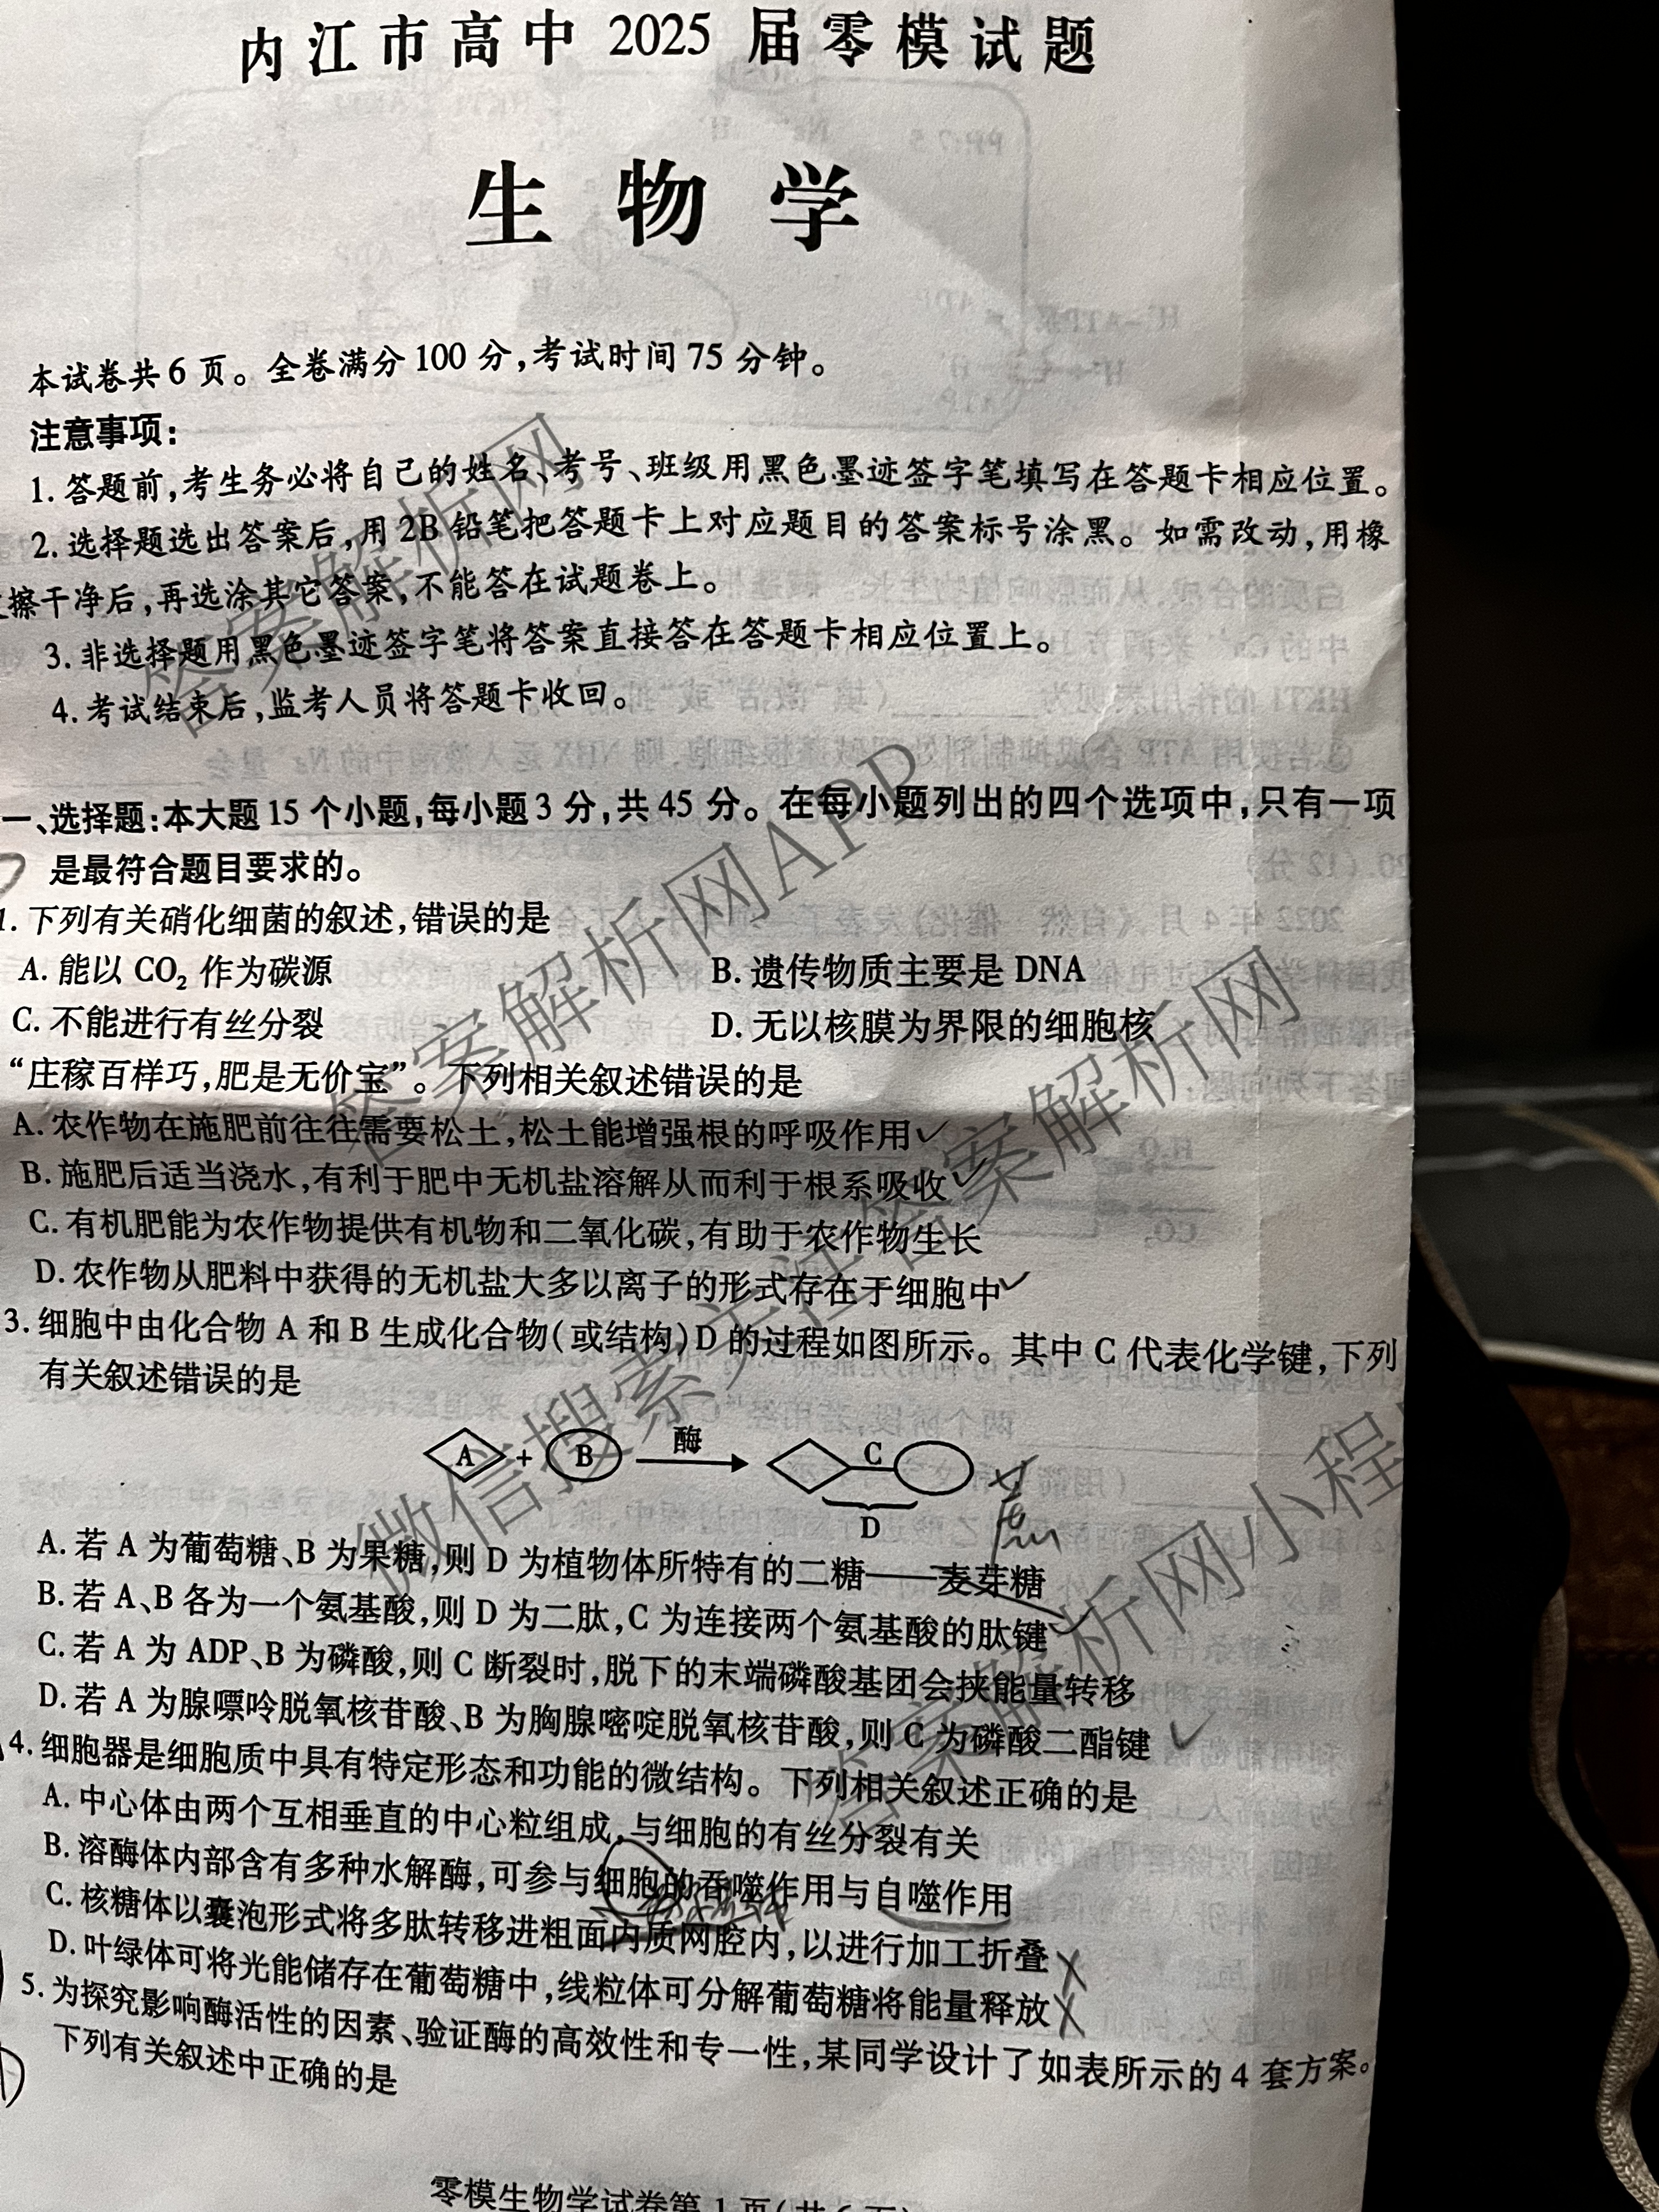 内江市高中 2025 届零模试题
生物学
本试卷共 6 页。全卷满分 100 分,考试时间 75 分钟。
注意事项:
1. 答题前,考生务必将自己的姓名、考号、班级用黑色墨迹签字笔填写在答题卡相应位置。
2. 选择题选出答案后,用 2B 铅笔把答题卡上对应题目的答案标号涂黑。如需改动,用橡
擦干净后,再选涂其它答案,不能答在试题卷上。
3. 非选择题用黑色墨迹签字笔将答案直接答在答题卡相应位置上。
4. 考试结束后,监考人员将答题卡收回。
一、选择题:本大题 15 个小题,每小题 3 分,共 45 分。在每小题列出的四个选项中,只有一项
是最符合题目要求的。
1. 下列有关硝化细菌的叙述,错误的是
A. 能以 CO₂ 作为碳源 B. 遗传物质主要是 DNA
C. 不能进行有丝分裂 D. 无以核膜为界限的细胞核
“庄稼百样巧,肥是无价宝”。下列相关叙述错误的是
A. 农作物在施肥前往往需要松土,松土能增强根的呼吸作用
B. 施肥后适当浇水,有利于肥中无机盐溶解从而利于根系吸收
C. 有机肥能为农作物提供有机物和二氧化碳,有助于农作物生长
D. 农作物从肥料中获得的无机盐大多以离子的形式存在于细胞中
3. 细胞中由化合物 A 和 B 生成化合物(或结构)D 的过程如图所示。其中 C 代表化学键,下列
有关叙述错误的是
A + B 酶 C
D
A. 若 A 为葡萄糖、B 为果糖,则 D 为植物体所特有的二糖——麦芽糖
B. 若 A、B 各为一个氨基酸,则 D 为二肽,C 为连接两个氨基酸的肽键
C. 若 A 为 ADP、B 为磷酸,则 C 断裂时,脱下的末端磷酸基团会挟能量转移
D. 若 A 为腺嘌呤脱氧核苷酸、B 为胸腺嘧啶脱氧核苷酸,则 C 为磷酸二酯键
4. 细胞器是细胞质中具有特定形态和功能的微结构。下列相关叙述正确的是
A. 中心体由两个互相垂直的中心粒组成,与细胞的有丝分裂有关
B. 溶酶体内部含有多种水解酶,可参与细胞的吞噬作用与自噬作用
C. 核糖体以囊泡形式将多肽转移进粗面内质网腔内,以进行加工折叠
D. 叶绿体可将光能储存在葡萄糖中,线粒体可分解葡萄糖将能量释放
5. 为探究影响酶活性的因素、验证酶的高效性和专一性,某同学设计了如表所示的 4 套方案。
下列有关叙述中正确的是
零模生物学试卷第 1 页(共 6 页)
答案解析网
答案解析网APP
微信搜索关注答案解析网
答案解析网小程